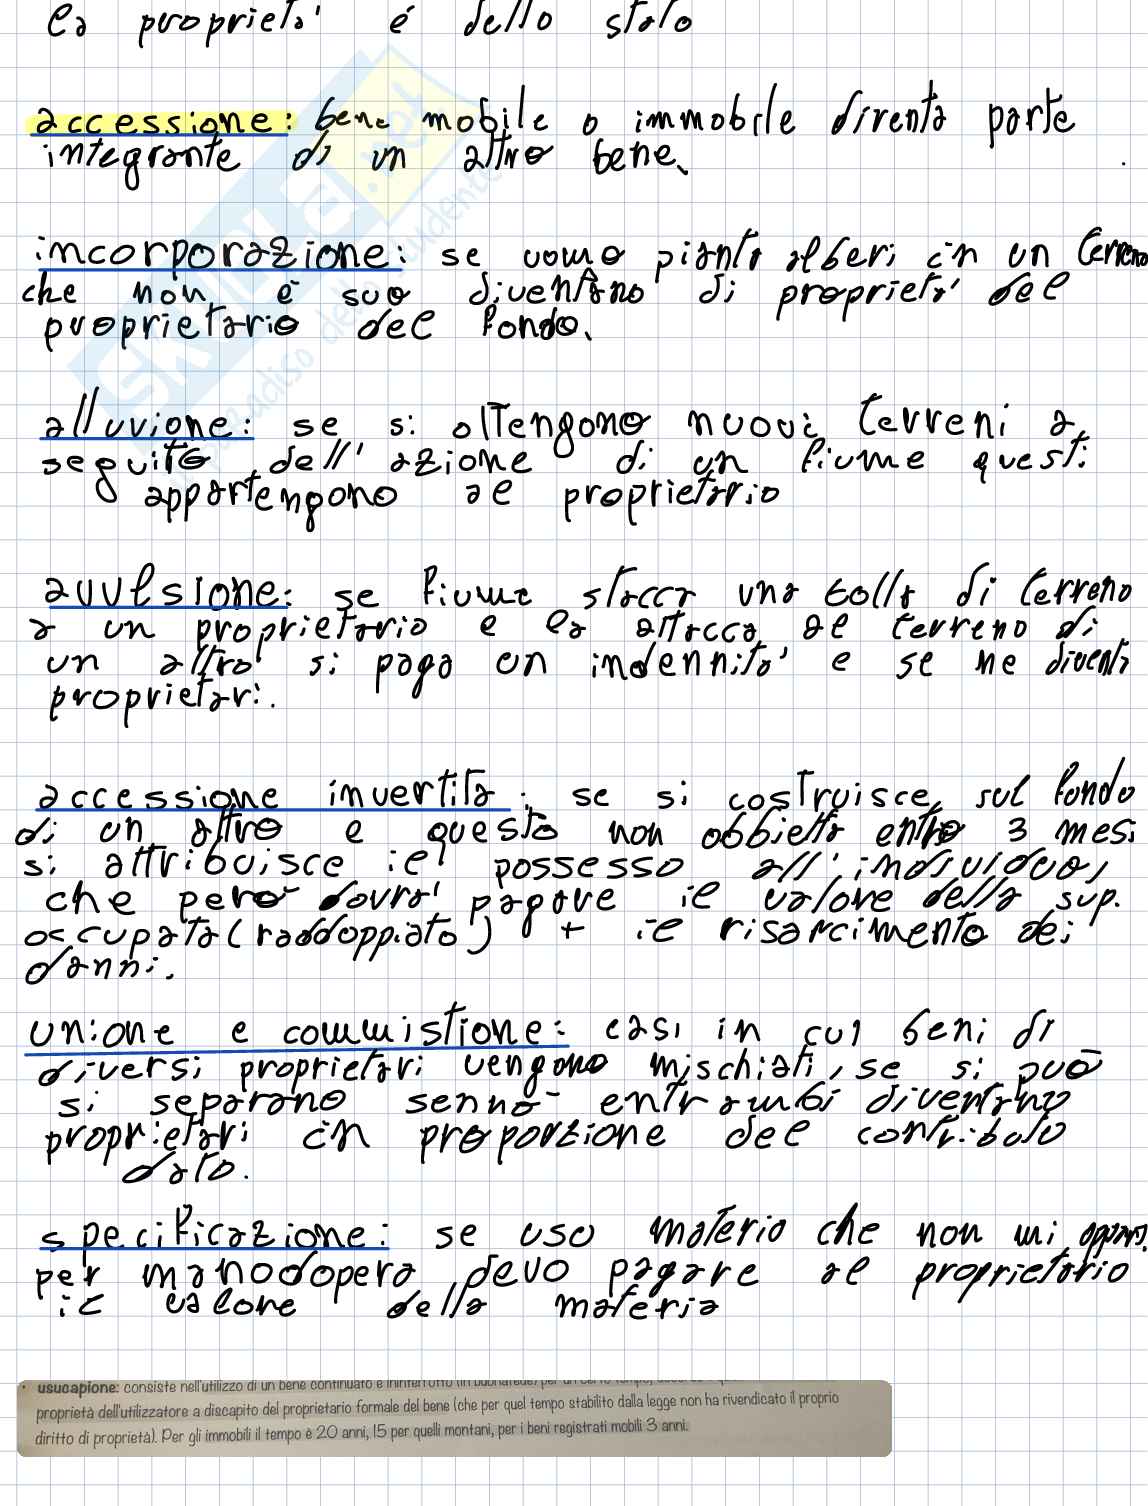 la proprietà é dello stato
accessione: bene mobile o immobile diventa parte
integrante di un altro bene.
incorporazione: se uomo pianta alberi in un terreno
che non è suo diventano di proprietà del
proprietario del fondo.
alluvione: se si ottengono nuovi terreni a
seguito dell'azione di un fiume questi
appartengono al proprietario
avvulsione: se fiume stacca una zolla di terreno
a un proprietario e la attacca al terreno di
un altro si paga un indennità e se ne diventa
proprietari.
accessione invertita: se si costruisce sul fondo
di un altro e questo non obbietta entro 3 mesi
si attribuisce il possesso all'individuo,
che però dovrà pagare il valore della sup.
occupata (raddoppiato) + il risarcimento dei
danni.
unione e commistione: casi in cui beni di
diversi proprietari vengono mischiati, se si può
si separano sennò entrambi diventano
proprietari in proporzione del contributo
dato.
specificazione: se uso materia che non mi appart.
per manodopera devo pagare al proprietario
il valore della materia
usucapione: consiste nell'utilizzo di un bene continuato e ininterrotto (in buonafede) per un certo tempo,
proprietà dell'utilizzatore a discapito del proprietario formale del bene (che per quel tempo stabilito dalla legge non ha rivendicato il proprio
diritto di proprietà). Per gli immobili il tempo è 20 anni, 15 per quelli montani, per i beni registrati mobili 3 anni.
SKUOLA.net
il paradiso dello studente